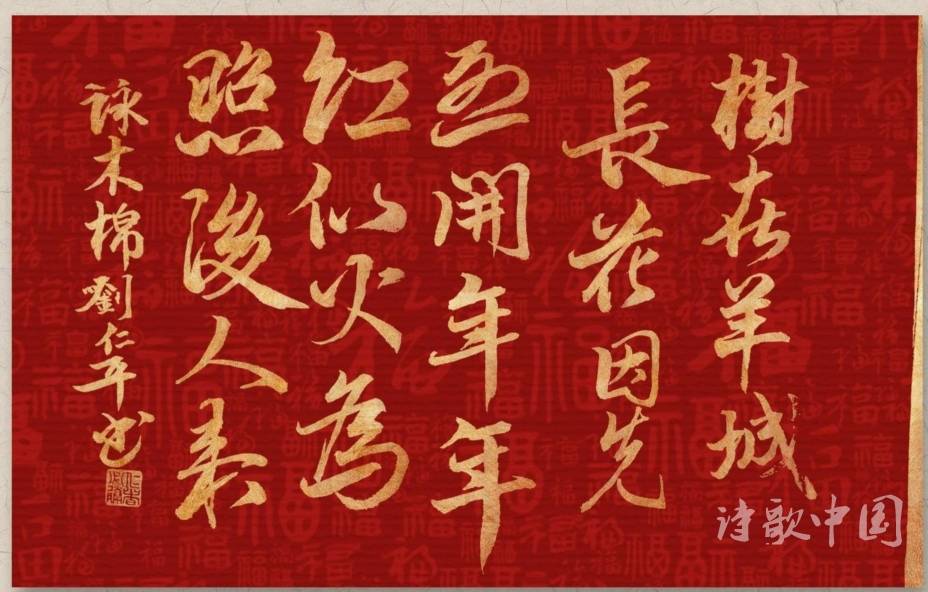 樹在羊城
長花因先
烈開年年
紅似火為
照後人來
詠木棉劉仁平书
诗歌中国